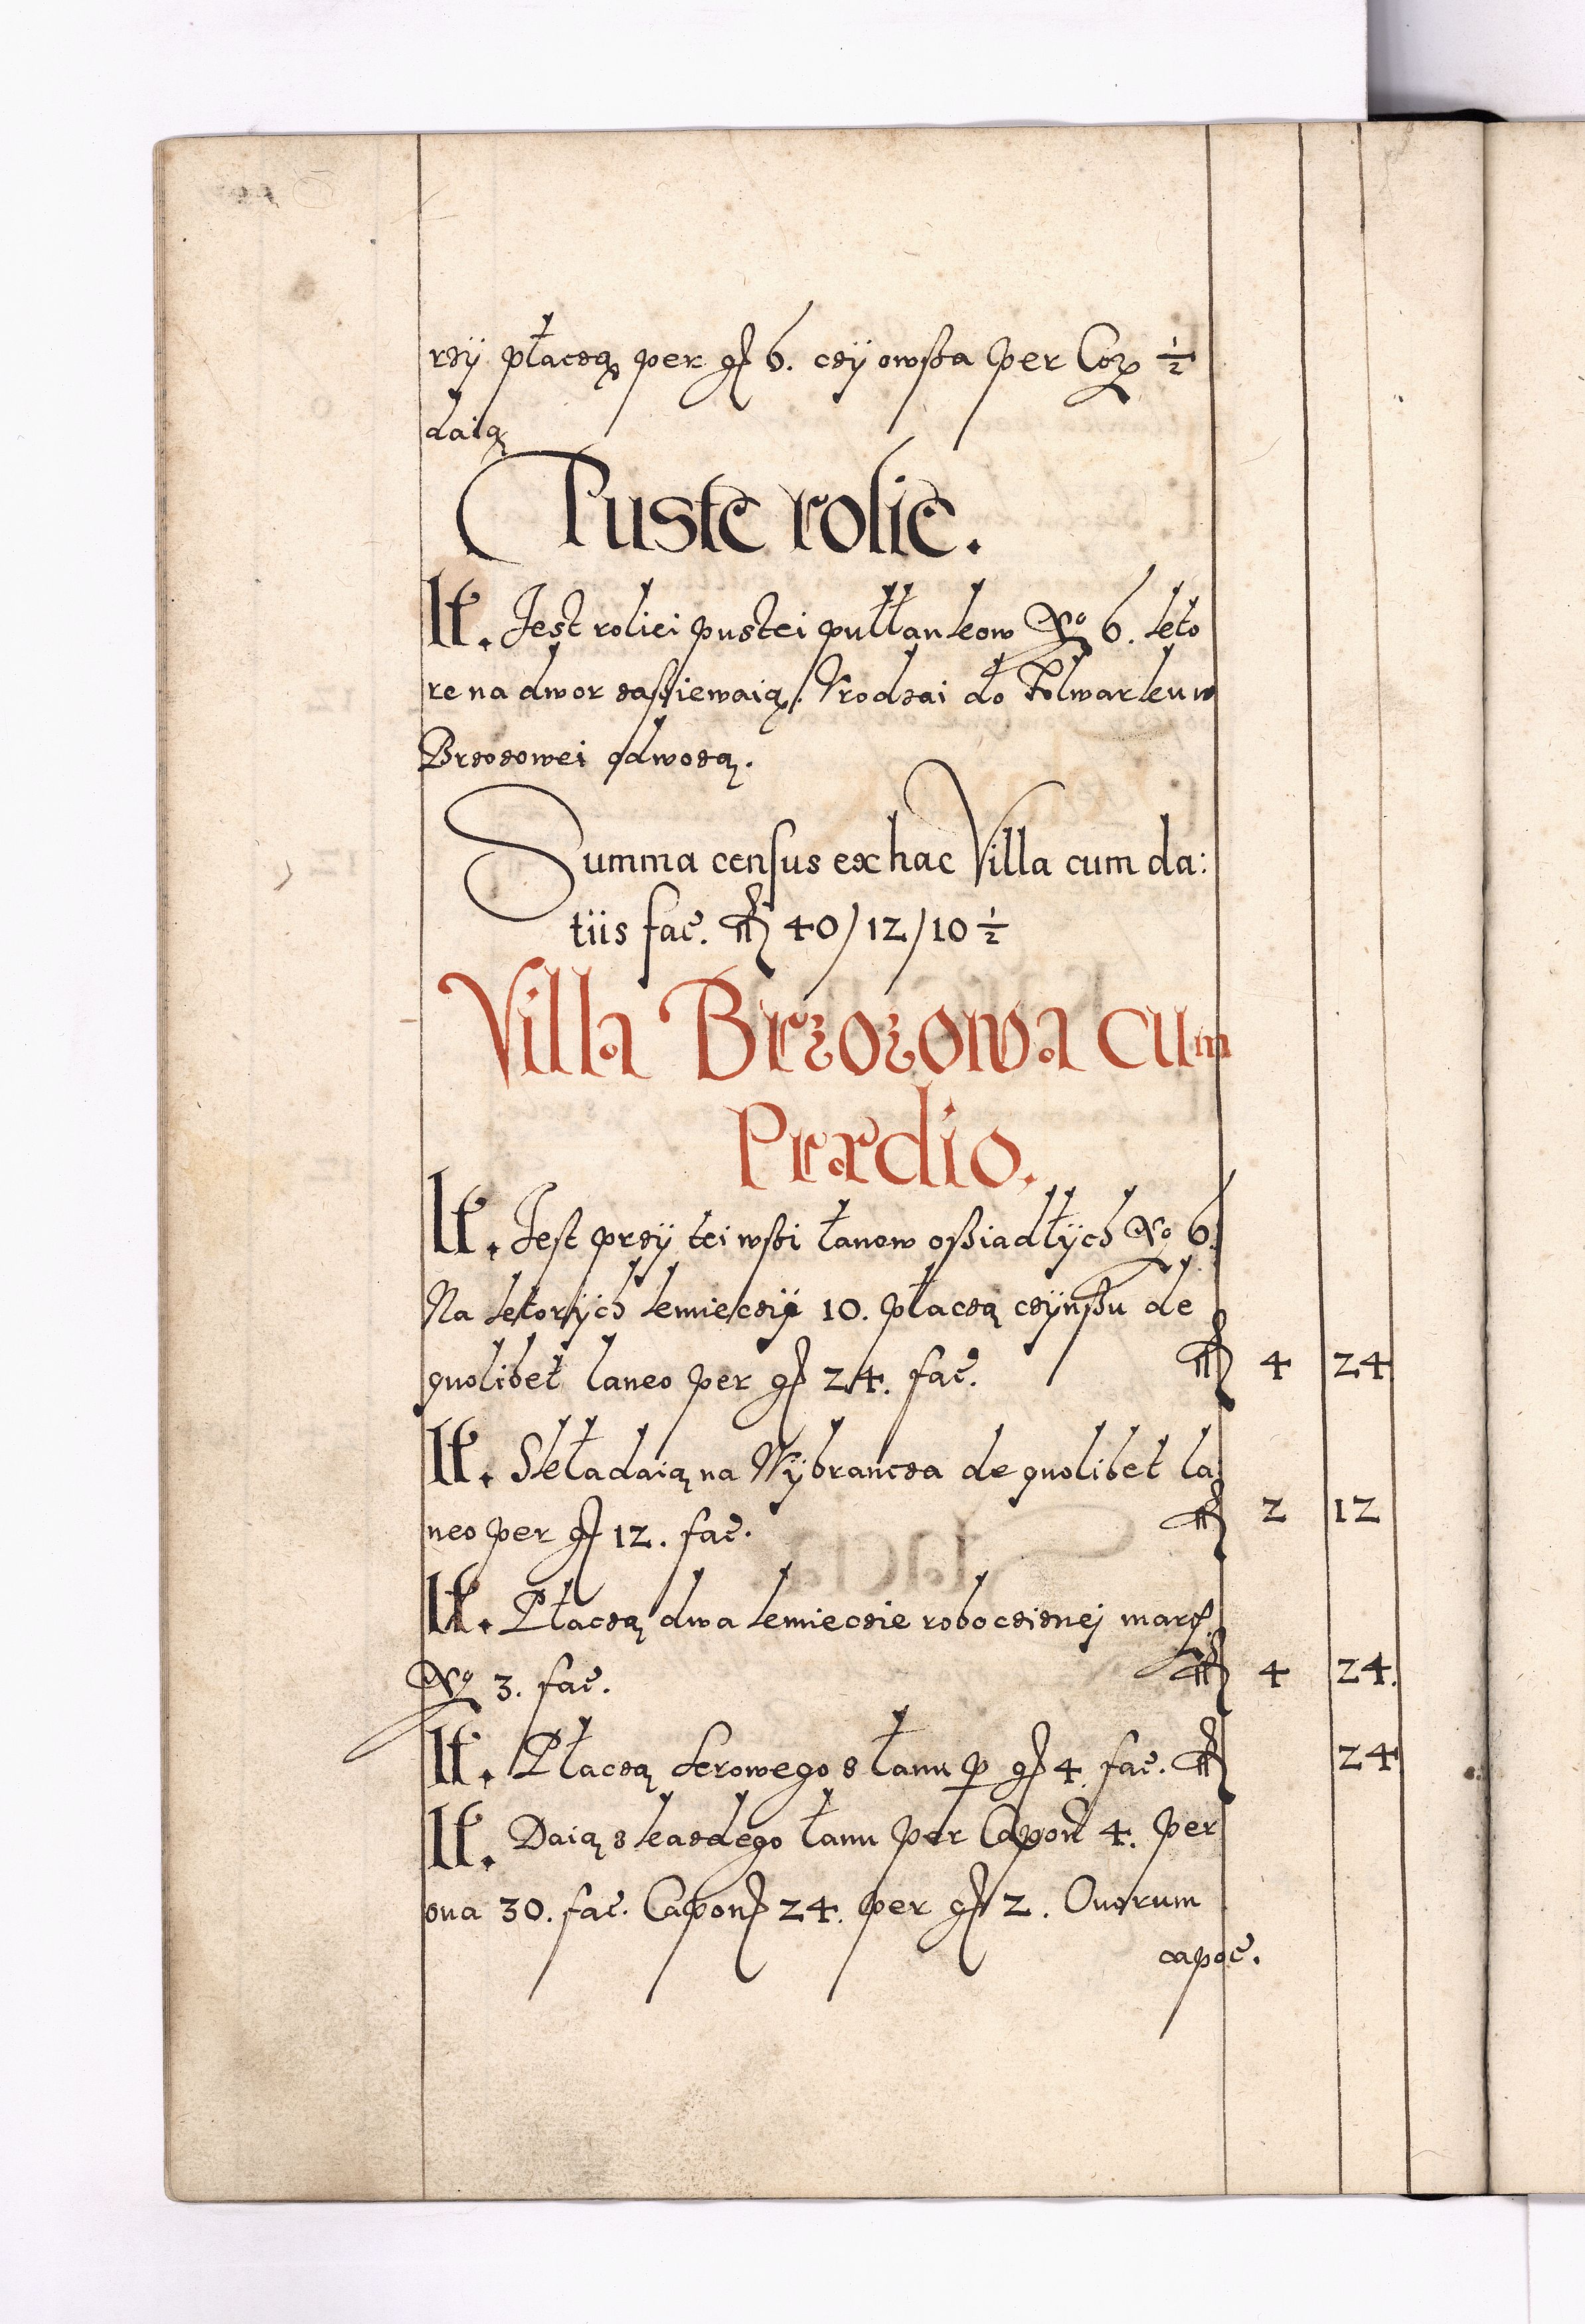 rzÿ płaczą per gß 6. czÿ owßa per Cor ½
daią
Puste rolie.
It. Jest roliei pustei pułłankow No 6. kto
re na dwor zaßiewaią. Vrodzai do Folwarku w
Brzozowei odwozą.
Summa census ex hac Villa cum da:
tiis fac. fl 40/12/10 ½
Villa Brzozowa cum
Prædio.
It. Jest przÿ tei wßi łanow oßiadłÿch No 6.
Na ktorÿch kmieczÿ 10. płaczą czÿnßu de
quolibet laneo per gß 24. fac. fl 4 24
It. Składaią na Wÿbrancza de quolibet la
neo per gß 12. fac. fl 2 12
It. Płaczą dwa kmieczie roboczienej marg.
No 3. fac. fl 4 24.
It. Płaczą serowego z łanu p gß 4. fac. fl 24
It. Daią z kazdego łanu per Capon 4. per
oua 30. fac. Capon 24. per gß 2. Ouorum
capoc.